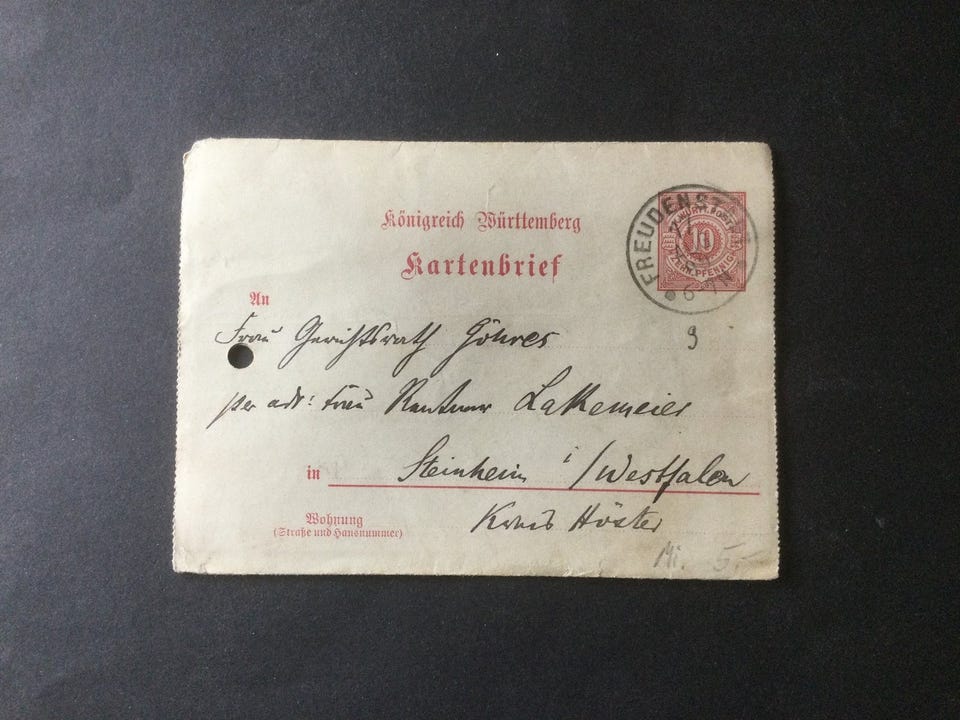 Königreich Württemberg
Kartenbrief
FREUDENST
K. WÜRTT. POST
10
ZEHN PFENNIG
6-7N
An
Frau Gerichtsrath Göhres
9
per adr: Frau Rentner Lakemeier
in Steinheim i/Westfalen
Wohnung
(Straße und Hausnummer)
Kreis Höxter
Mi. 5.-